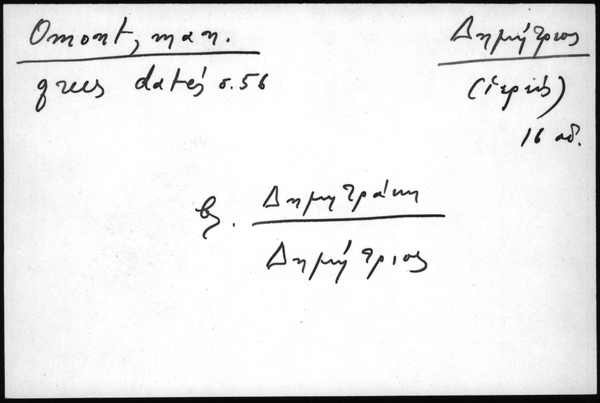 Omont, man.
grecs datés σ. 56
Δημήτριος
(ἱερεύς)
16 αἰ.
βλ. Δημητράκη
Δημήτριος